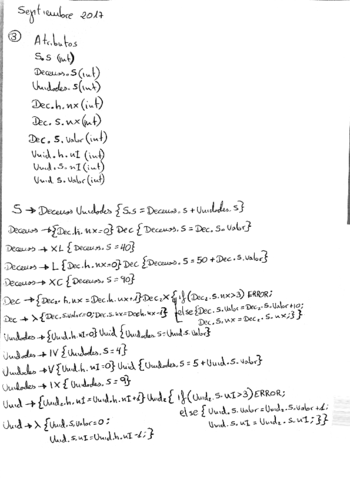 Septiembre 2017
③ Atributos
S.s (int)
Decenas.s (int)
Unidades.s (int)
Dec.h.nx (int)
Dec.s.nx (int)
Dec.s.valor (int)
Unid.h.nI (int)
Unid.s.nI (int)
Unid.s.valor (int)
S → Decenas Unidades {S.s = Decenas.s + Unidades.s}
Decenas → {Dec.h.nx=0} Dec {Decenas.s = Dec.s.valor}
Decenas → XL {Decenas.s = 40}
Decenas → L {Dec.h.nx=0} Dec {Decenas.s = 50 + Dec.s.valor}
Decenas → XC {Decenas.s = 90}
Dec → {Dec₁.h.nx = Dec.h.nx+1} Dec₁ X {if (Dec₁.s.nx>3) ERROR;
Dec → λ {Dec.s.valor=0; Dec.s.nx=Dec.h.nx-1} else {Dec.s.valor = Dec₁.s.valor+10;
Dec.s.nx = Dec₁.s.nx;}}
Unidades → {Unid.h.nI=0} Unid {Unidades.s = Unid.s.valor}
Unidades → IV {Unidades.s = 4}
Unidades → V {Unid.h.nI=0} Unid {Unidades.s = 5 + Unid.s.valor}
Unidades → IX {Unidades.s = 9}
Unid → {Unid₁.h.nI = Unid.h.nI+1} Unid₁ {if (Unid₁.s.nI>3) ERROR;
else {Unid.s.valor = Unid₁.s.valor+1;
Unid → λ {Unid.s.valor=0; Unid.s.nI = Unid₁.s.nI;}}
Unid.s.nI = Unid.h.nI-1;}